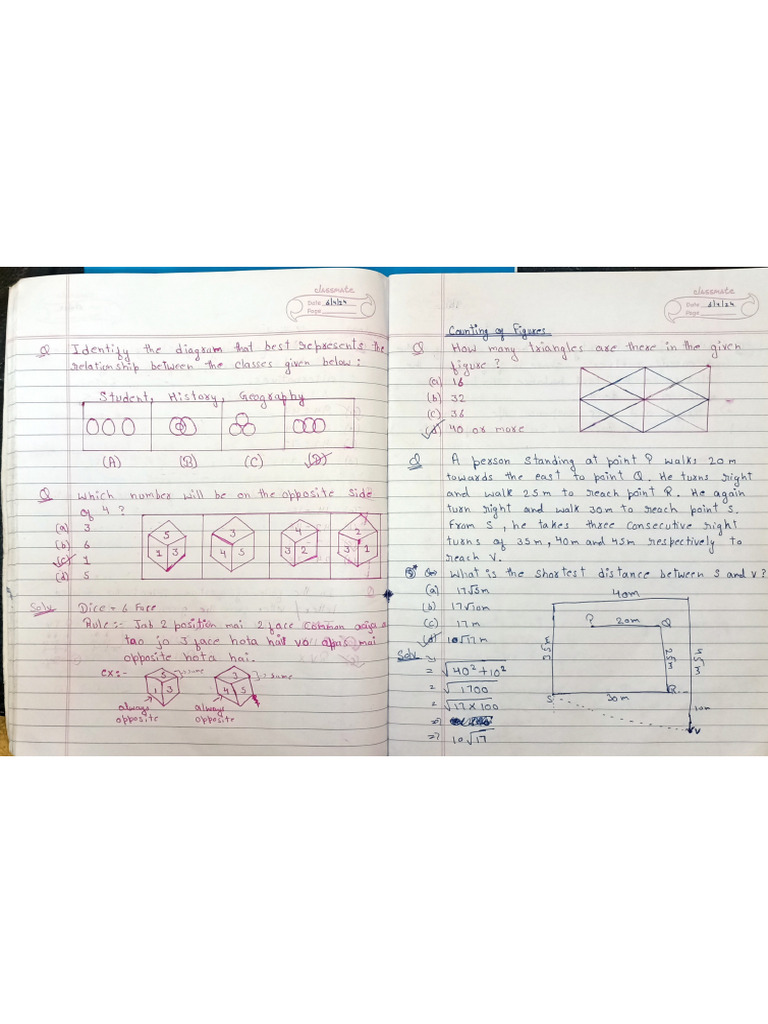 classmate
Date 6/4/24
Page
Q Identify the diagram that best represents the
relationship between the classes given below :
Student, History, Geography
(A) (B) (C) (D)
Q Which number will be on the opposite side
of 4 ?
(a) 3
(b) 6
(c) 1
(d) 5
5 1 3
3 4 5
4 3 2
2 3 1
Solv Dice = 6 Face
Rule :- Jab 2 position mai 2 face common aajae
tao jo 3 face hota hai vo apas mai
opposite hota hai.
ex:-
5 1 3 same
3 4 5 same
always
opposite
always
opposite
classmate
Date 6/4/24
Page
Counting of Figures
Q How many triangles are there in the given
figure ?
(a) 16
(b) 32
(c) 36
(d) 40 or more
Q A person standing at point P walks 20 m
towards the east to point Q. He turns right
and walk 25 m to reach point R. He again
turn right and walk 30 m to reach point S.
From S, he takes three consecutive right
turns of 35 m, 40 m and 45 m respectively to
reach V.
What is the shortest distance between S and V ?
(a) 17√3 m
(b) 17√10 m
(c) 17 m
(d) 10√17 m
40 m
P 20m Q
35 m
25 m
45 m
S 30 m R
10m
V
Solv
= √40² + 10²
= √1700
= √17 × 100
=> 10√17